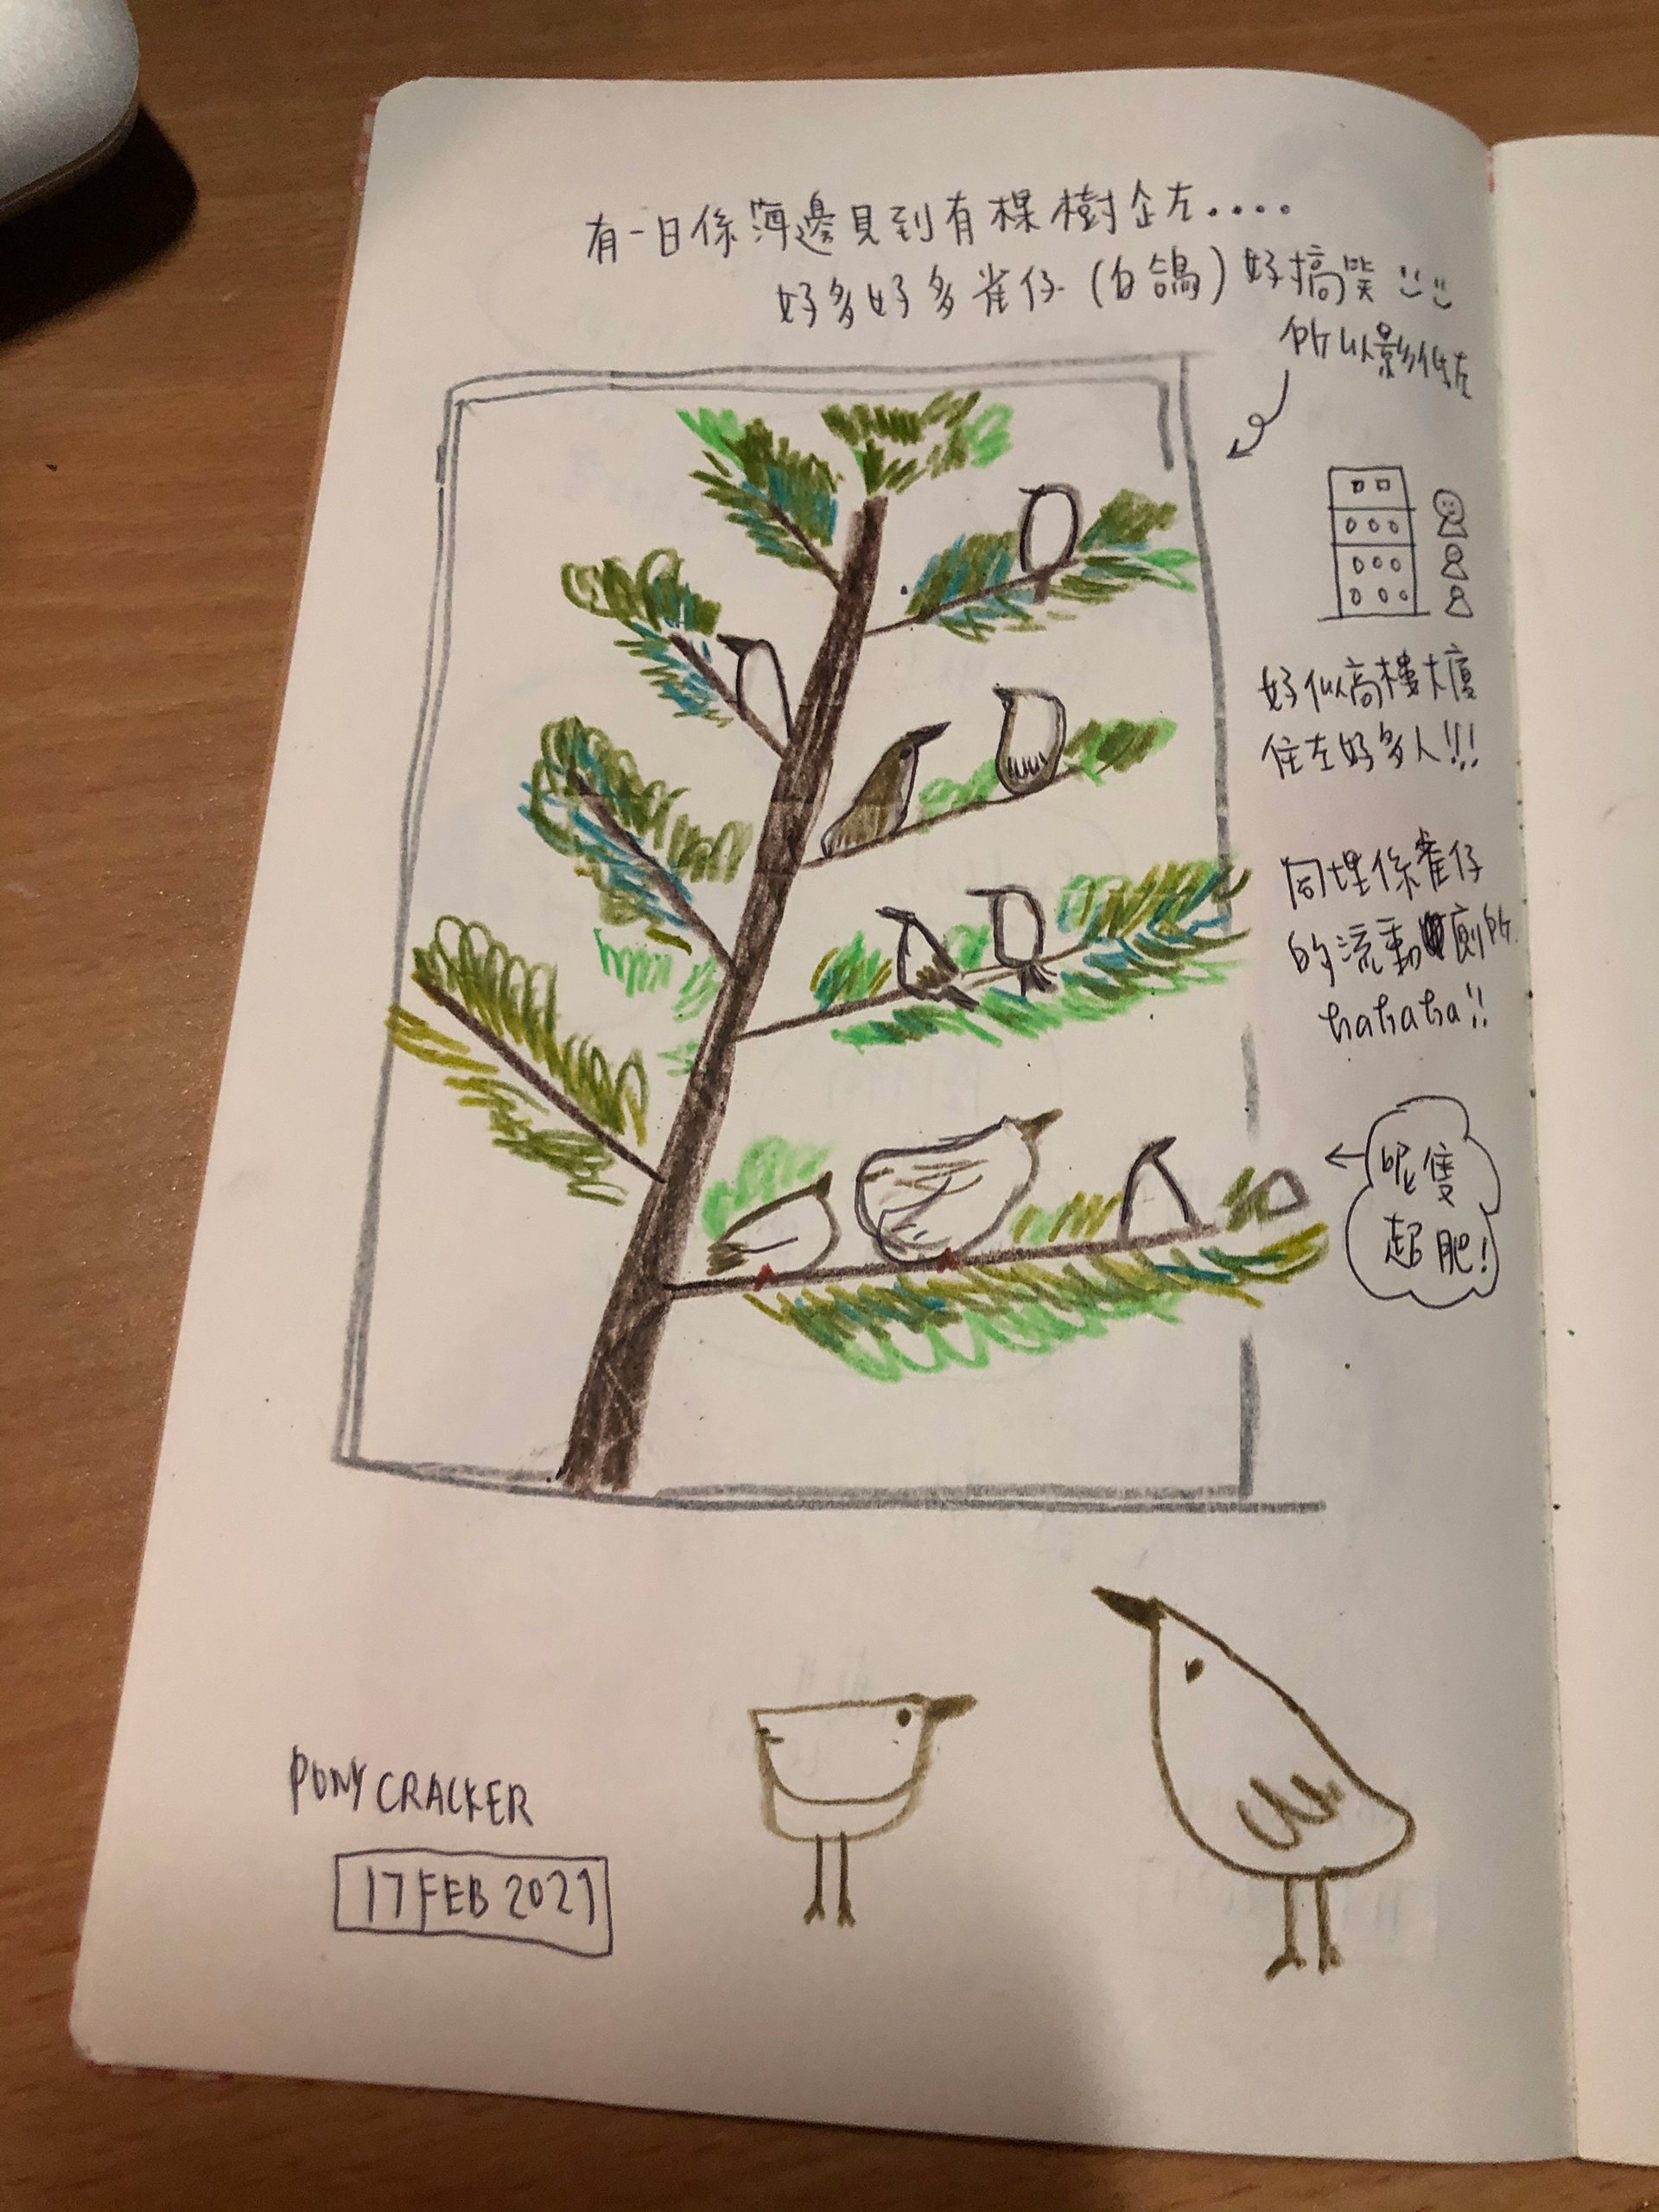 有一日係海邊見到有棵樹企左....
好多好多雀仔(白鴿)好搞笑
所以影低左
好似高樓大廈
住左好多人!!!
同埋係雀仔
的流動廁所
hahaha!!
呢隻
超肥!
PONY CRACKER
17 FEB 2021